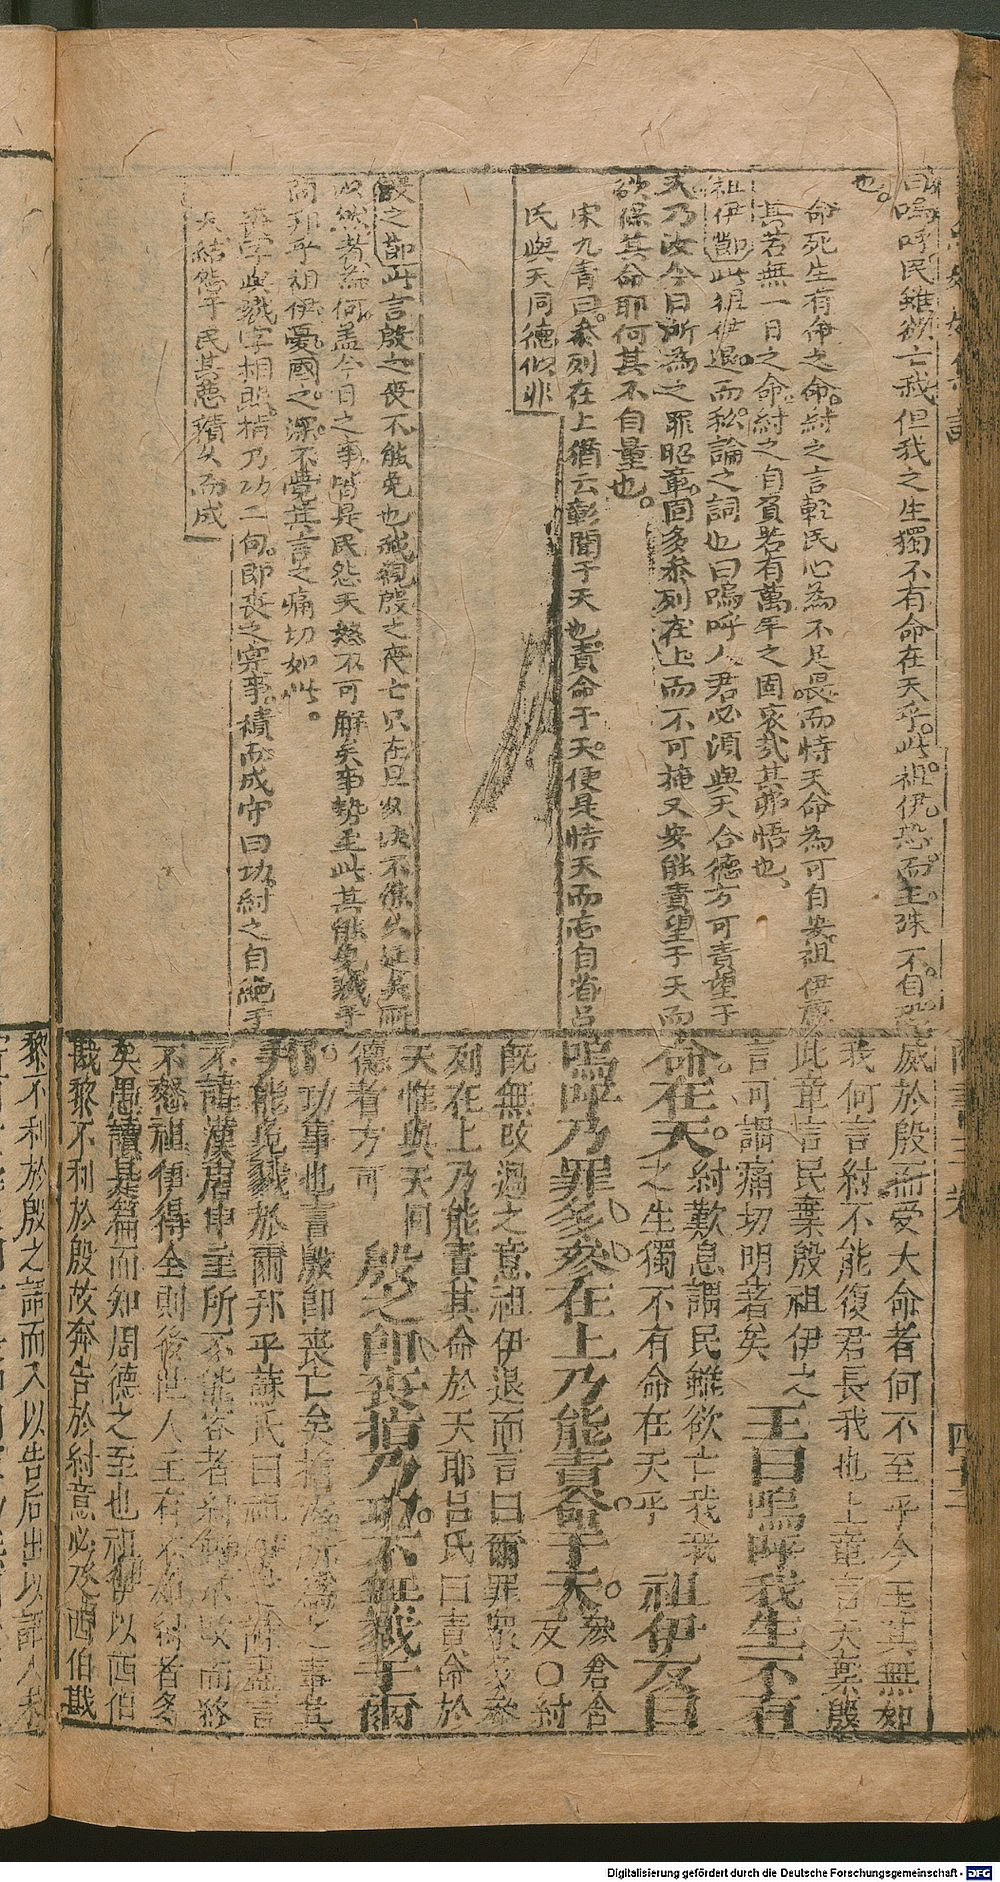 曰嗚呼民雖欲亡我但我之生獨不有命在天乎此祖伊恐而王殊不自恐
也
命死生有命之命紂之言輕民心為不足畏而恃天命為可自安祖伊
其若無一日之命紂之自負若有萬年之固哀哉其弗悟也
祖伊節此祖伊退而私論之詞也曰嗚呼人君必須與天合德方可責望于
天乃汝今日所為之罪昭章固多參列在上而不可掩又安能責望于天而
欲保其命耶何其不自量也
宋九青曰參列在上猶云彰聞于天也責命于天便是恃天而忘自省呂
氏與天同德似非
殷之節此言殷之喪不能免也試視殷之喪亡只在旦夕決不
以然者為何盖今日之事皆是民怨天怒不可解矣事勢至此其能免戮于
商邦乎祖伊憂國之深不覺其言之痛切如此
喪字與戮字相照指乃功二句即喪之實事積而成字曰功紂之自絕于
天結怨于民其惡積久而成
威於殷而受大命者何不至乎今王其無如
我何言紂不能復君長我也上章言天棄殷
此章言民棄殷祖伊之
言可謂痛切明著矣
王曰嗚呼我生不有
命在天
紂歎息謂民雖欲亡我我
之生獨不有命在天乎
祖伊反曰
嗚呼乃罪多參在上乃能責命于天
參倉含
反○紂
既無改過之意祖伊退而言曰爾罪衆多參
列在上乃能責其命於天耶呂氏曰責命於
天惟與天同
德者方可
殷之卽喪指乃功不無戮于爾
邦
功事也言殷卽喪亡矣指汝所為之事其
能免戮於爾邦乎蘇氏曰祖伊之諫盡言
不諱漢唐中主所不能容者紂雖不改而終
不怒祖伊得全則後世人主有不如紂者多
矣愚讀是篇而知周德之至也祖伊以西伯
戡黎不利於殷故奔告於紂意必及西伯戡
黎不利於殷之語而入以告后出以語人未